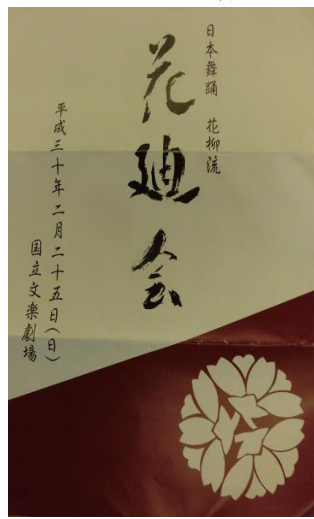 日本舞踊 花柳流
花廸会
平成三十年二月二十五日(日)
国立文楽劇場